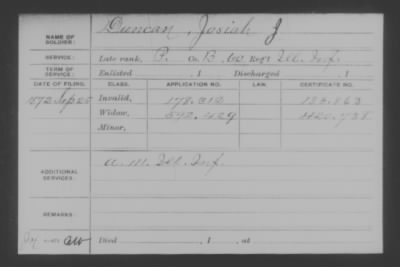 NAME OF SOLDIER: Duncan, Josiah J
SERVICE: Late rank, P. Co. B, Reg't Ill. Inf.
TERM OF SERVICE: Enlisted , 1 Discharged , 1
DATE OF FILING. CLASS. APPLICATION NO. LAW. CERTIFICATE NO.
Invalid, 178.212
Widow, 592.429 420.738
Minor,
ADDITIONAL SERVICES: Ill. Inf.
REMARKS:
Died , 1 , at